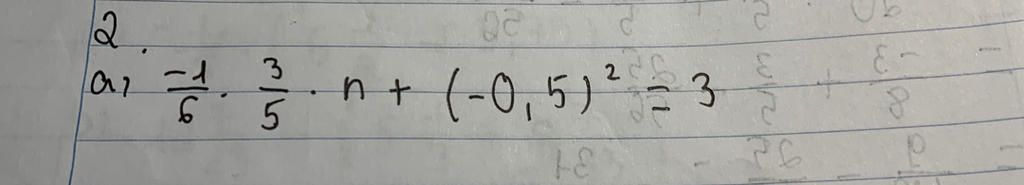 2.
a, -1/6 . 3/5 . n + (-0,5)² = 3